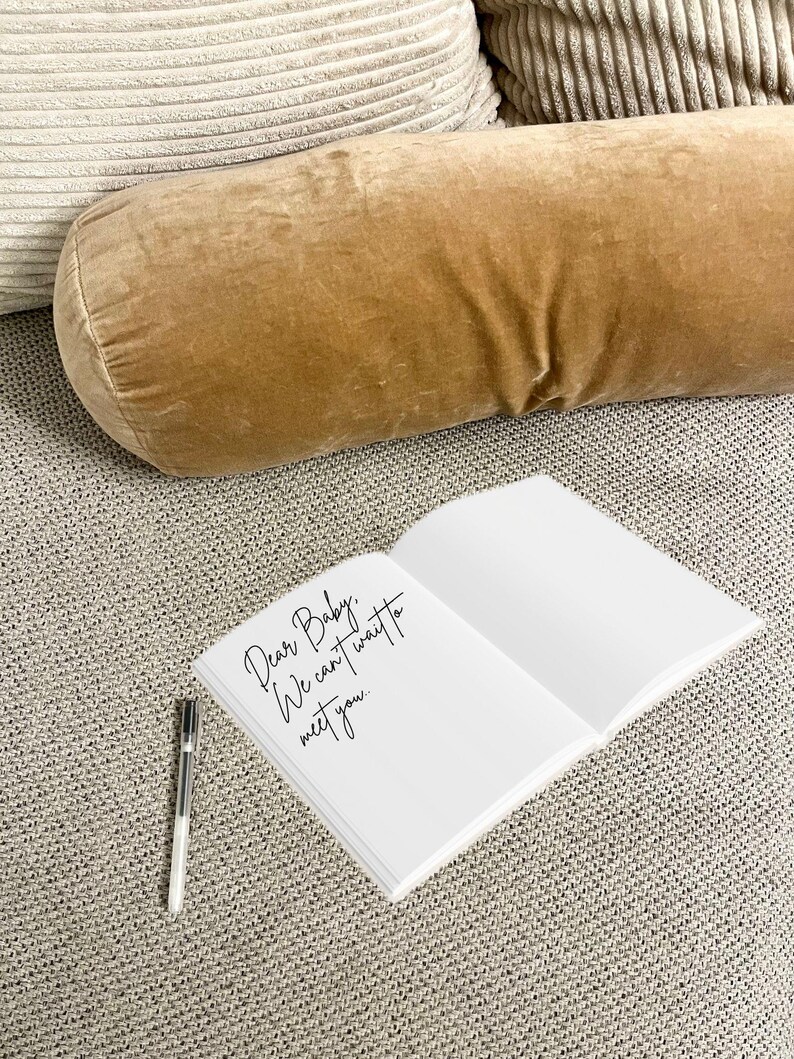 Dear Baby,
We can't wait to
meet you..